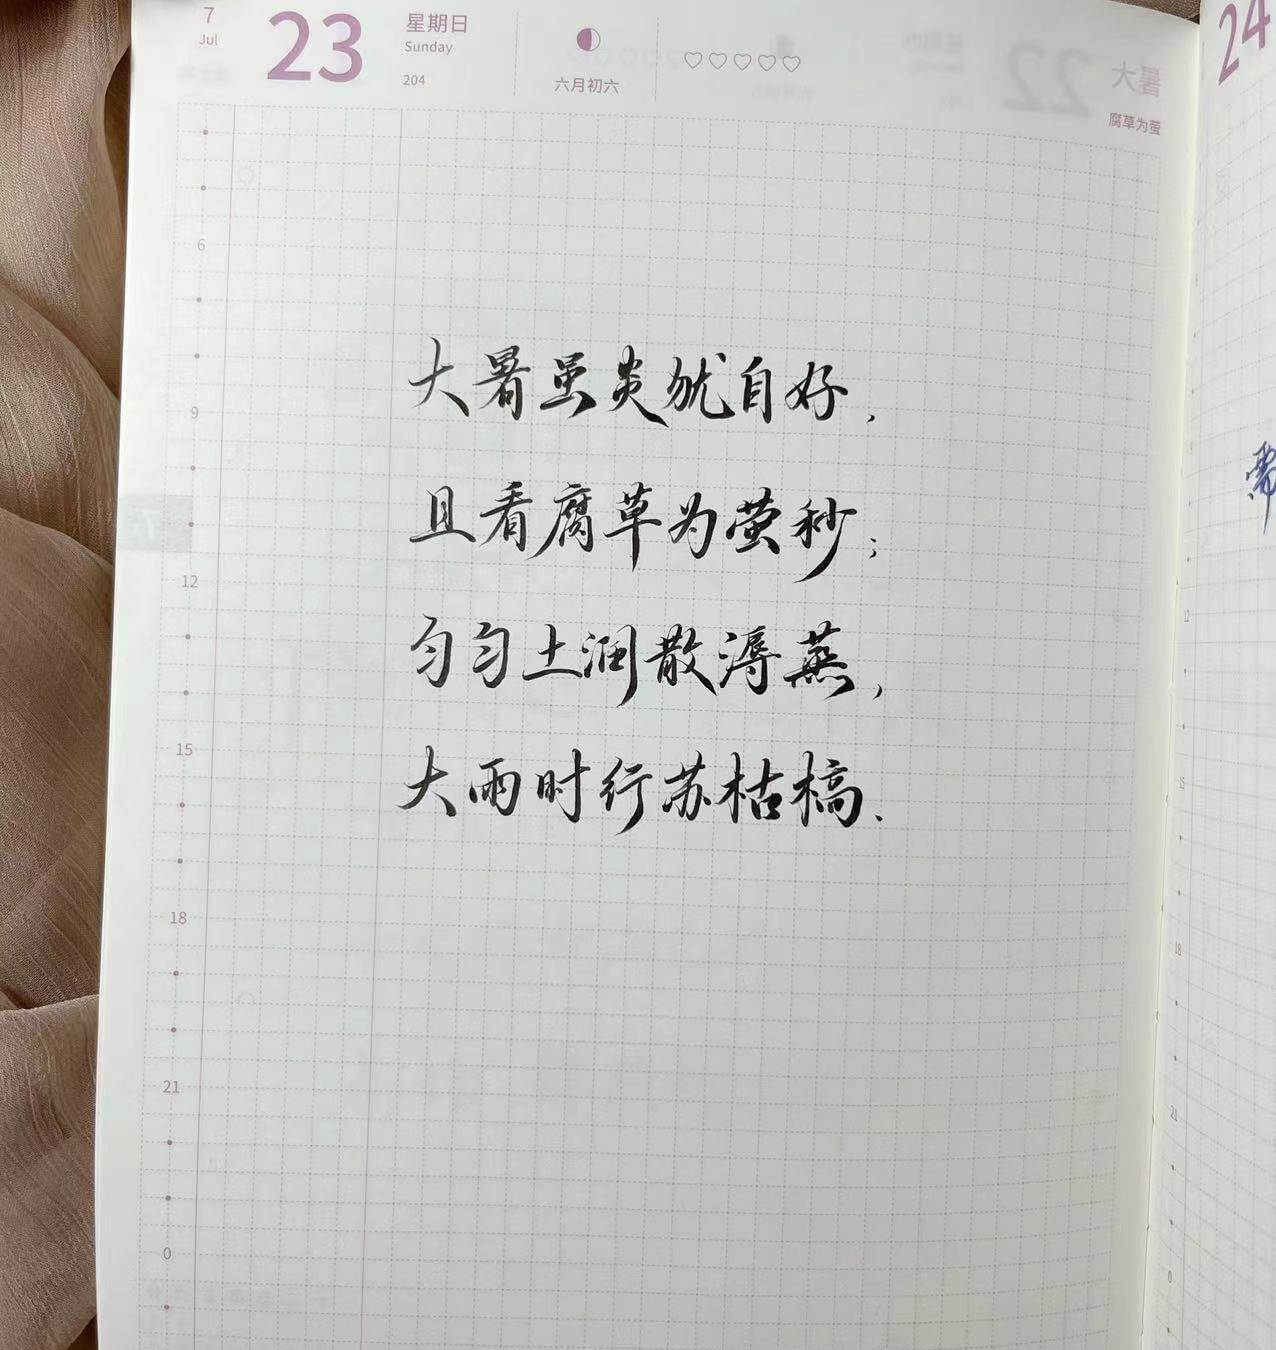 7
Jul
23
星期日
Sunday
204
六月初六
大暑
腐草为萤
24
大暑虽炎犹自好，
且看腐草为萤秒；
匀匀土润散溽蒸，
大雨时行苏枯槁．
6
9
7
12
15
18
21
0
12
15
18
21
0